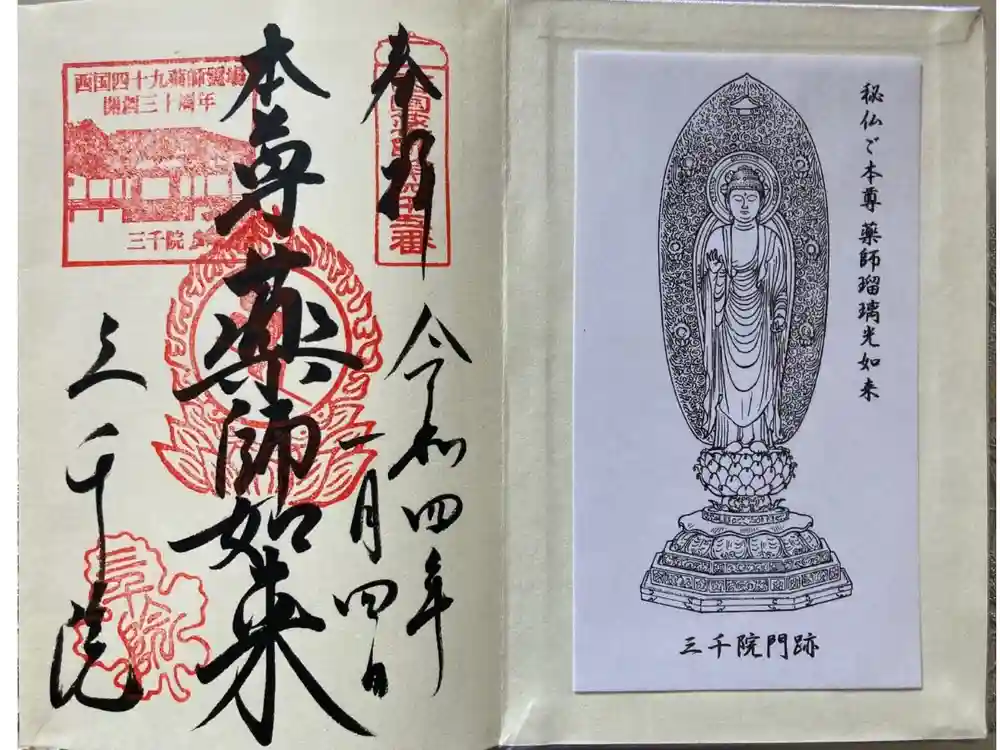 奉拝
令和四年
一月四日
本尊薬師如来
三千院
西国四十九薬師霊場
開創三十周年
三千院
秘仏ご本尊 薬師瑠璃光如来
三千院門跡